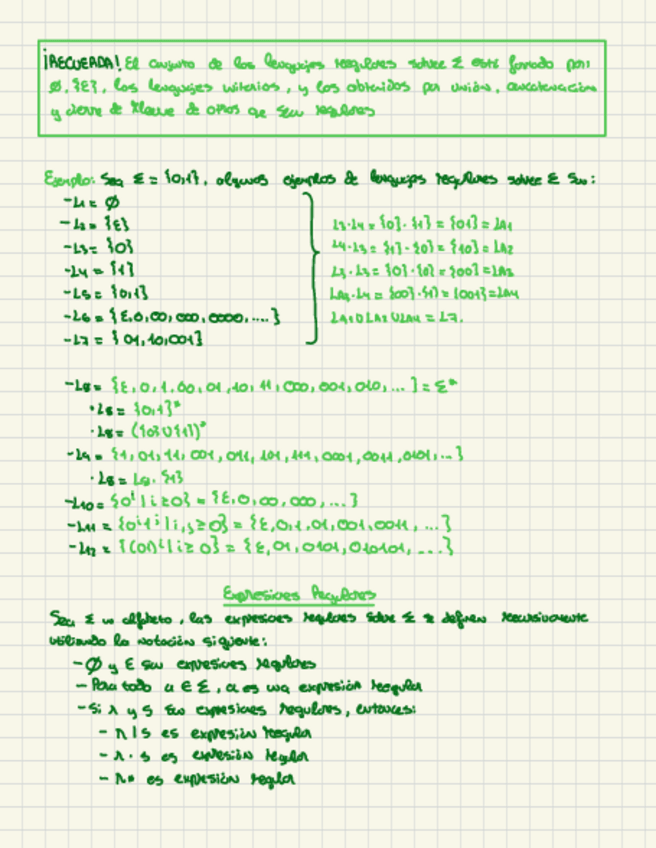 ¡RECUERDA! El conjunto de los lenguajes regulares sobre Σ está formado por:
∅, {ε}, los lenguajes unitarios, y los obtenidos por unión, concatenación
y cierre de Kleene de otros que sean regulares
Ejemplo: Sea Σ = {0,1}, algunos ejemplos de lenguajes regulares sobre Σ son:
- L1 = ∅
- L2 = {ε}
- L3 = {0}
- L4 = {1}
- L5 = {0,1}
- L6 = {ε,0,00,000,0000,....}
- L7 = {01,10,001}
L3·L4 = {0}·{1} = {01} = LA1
L4·L3 = {1}·{0} = {10} = LA2
L3·L3 = {0}·{0} = {00} = LA3
LA3·L4 = {00}·{1} = {001} = LA4
LA1∪LA2∪LA4 = L7.
- L8 = {ε,0,1,00,01,10,11,000,001,010,...} = Σ*
· L8 = {0,1}*
· L8 = ({0}∪{1})*
- L9 = {1,01,11,001,011,101,111,0001,0011,0101,...}
· L8 = L8·{1}
- L10 = {0^i | i≥0} = {ε,0,00,000,...}
- L11 = {0^i1^j | i,j≥0} = {ε,0,1,01,001,0011,...}
- L12 = {(01)^i | i≥0} = {ε,01,0101,010101,...}
Expresiones Regulares
Sea Σ un alfabeto, las expresiones regulares sobre Σ se definen recursivamente
utilizando la notación siguiente:
- ∅ y ε son expresiones regulares
- Para todo a ∈ Σ, a es una expresión regular
- Si r y s son expresiones regulares, entonces:
- r | s es expresión regular
- r · s es expresión regular
- r* es expresión regular